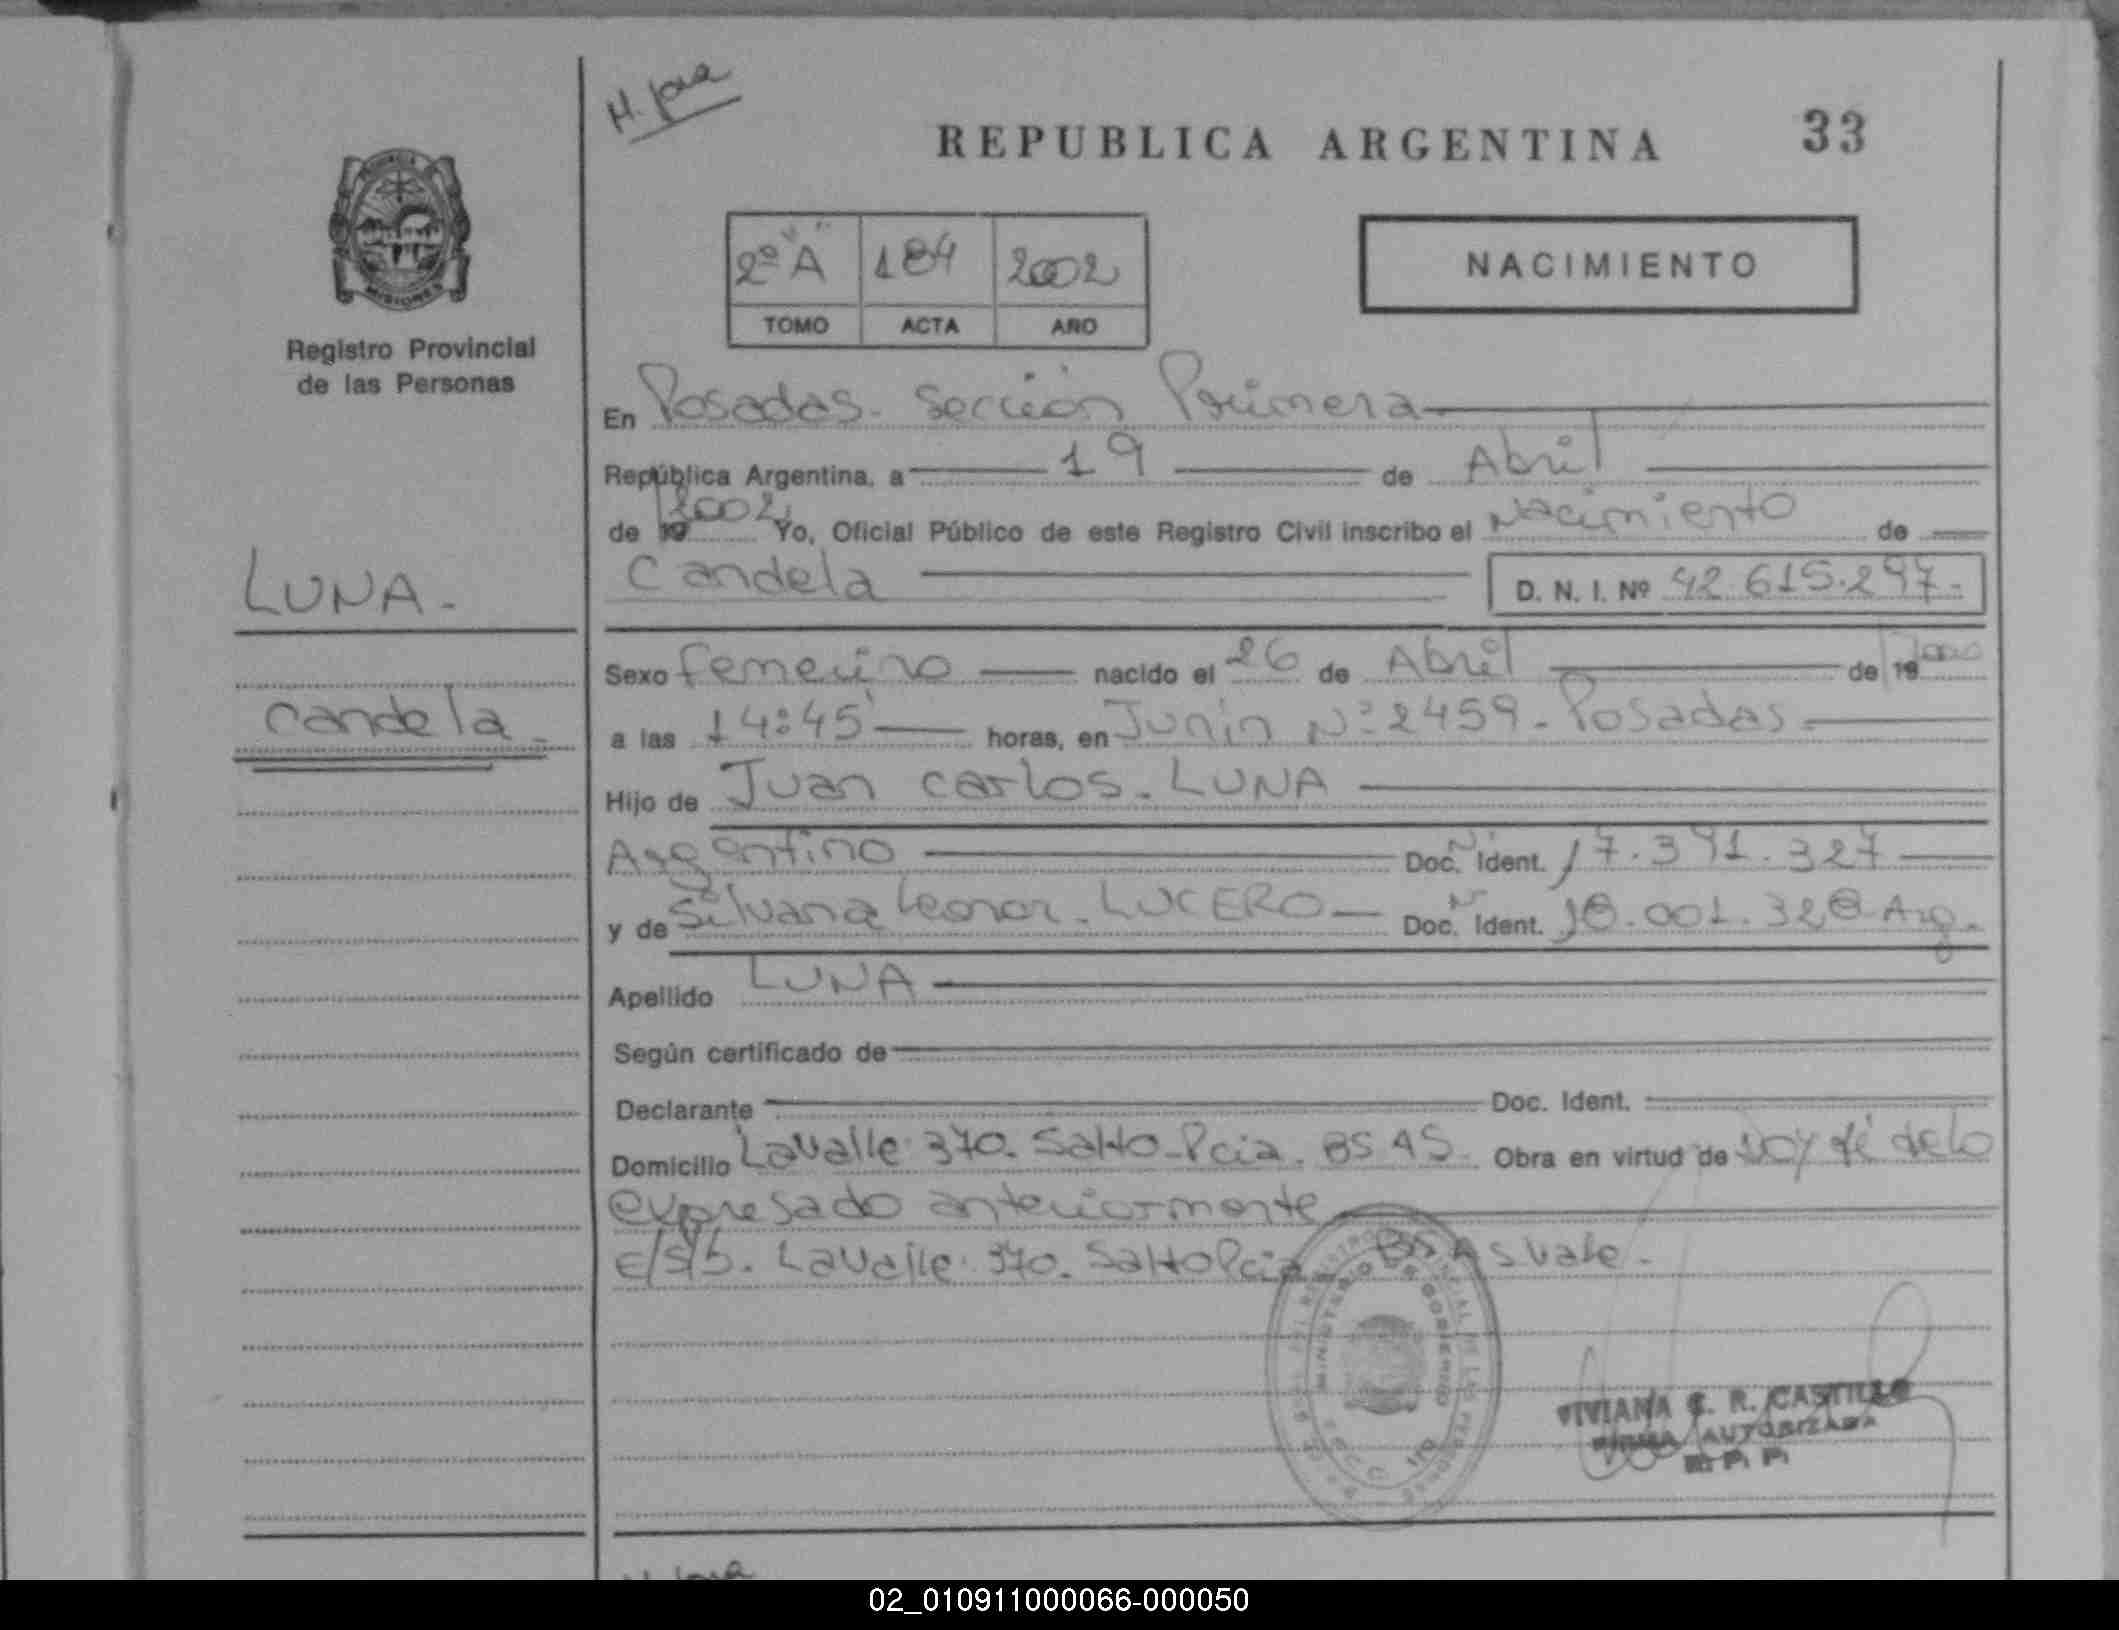 H. Jara
REPUBLICA ARGENTINA 33
2º "A" 184 2002
TOMO ACTA AÑO
NACIMIENTO
MISIONES
Registro Provincial
de las Personas
En Posadas. Sección Primera
República Argentina, a 19 de Abril
de 19 2002 Yo, Oficial Público de este Registro Civil inscribo el Nacimiento de
Candela D. N. I. Nº 42.615.297.
LUNA.
Sexo femenino nacido el 26 de Abril de 19 2000
Candela.
a las 14:45' horas, en Junín Nº 2459. Posadas.
Hijo de Juan Carlos. LUNA
Argentino Doc. Nº Ident. 17.391.327
y de Silvana Leonor. LUCERO Doc. Nº Ident. 18.001.328 Arg.
Apellido LUNA
Según certificado de
Declarante Doc. Ident.
Domicilio Lavalle 370. Salto-Pcia. BS AS. Obra en virtud de Doy fé de lo
expresado anteriormente
E/S/b. Lavalle 370. Salto Pcia BS AS vale.
MINISTERIO DE GOBIERNO
VIVIANA C. R. CASTILLO
FIRMA AUTORIZADA
R. P. P.
02_010911000066-000050